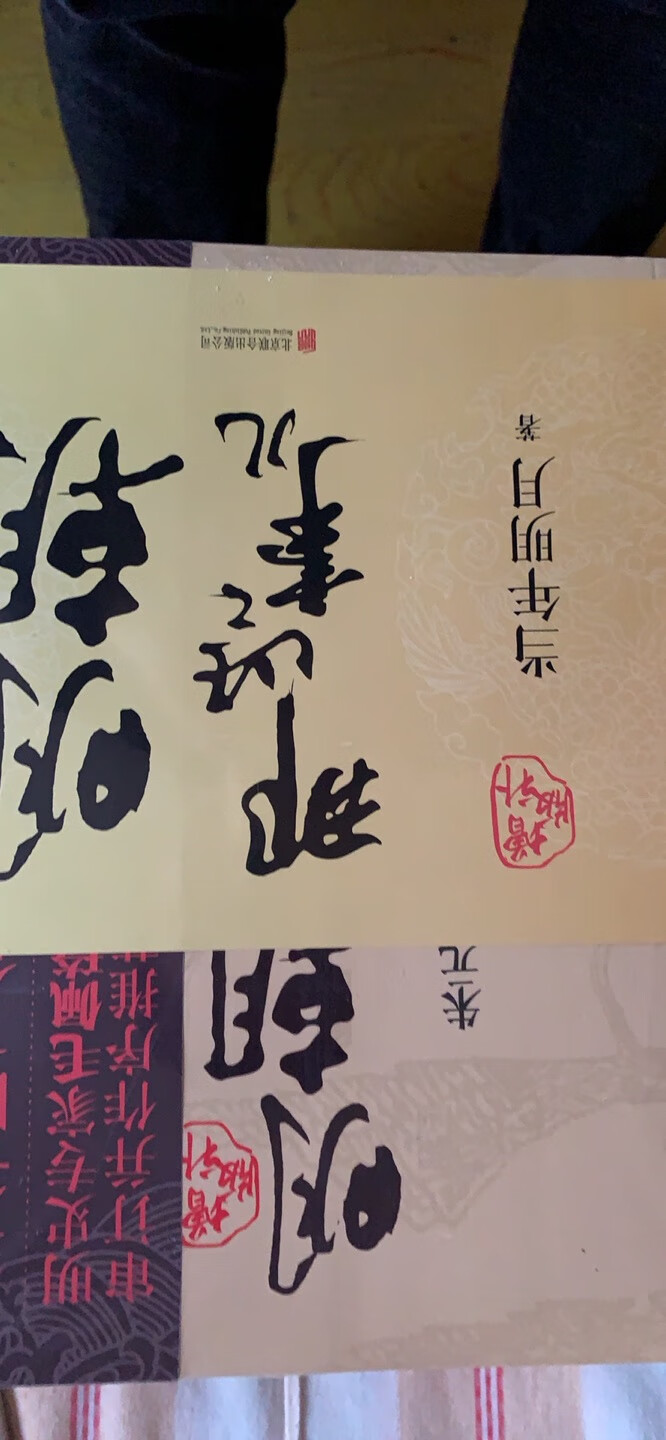 明朝
那些事儿
当年明月 著
增补版
北京联合出版公司
Beijing United Publishing Co.,Ltd.
明史专家毛佩
审订并作序推
明朝
增补版
朱元